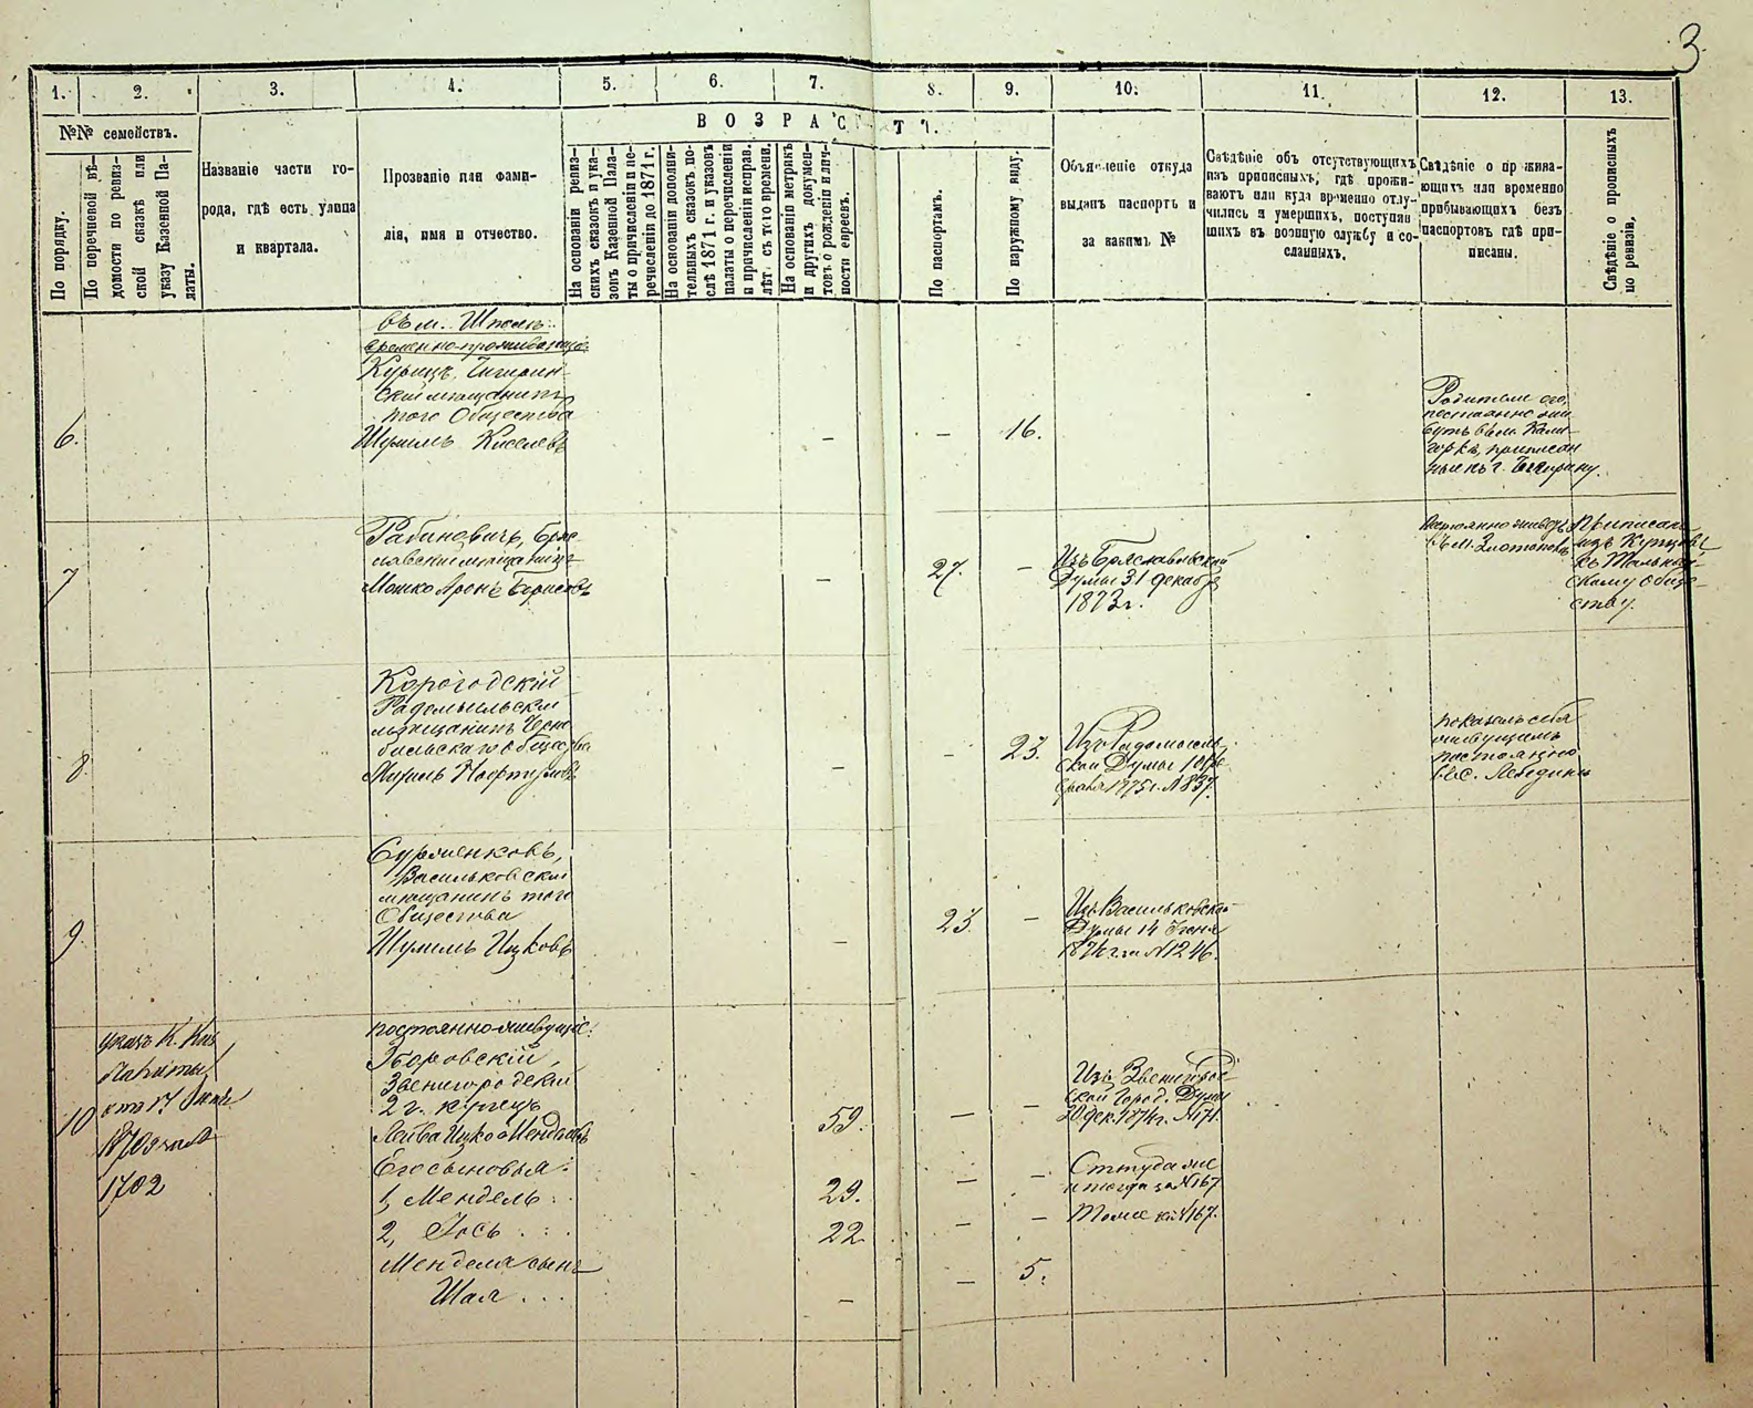 3.
1. 2. 3. 4. 5. 6. 7. 8. 9. 10. 11 12. 13.
№№ семействъ.
По порядку.
По перечневой вѣ-
домости по ревиз-
ской сказкѣ или
указу Казенной Па-
латы.
Названіе части го-
рода, гдѣ есть улица
и квартала.
Прозваніе или фами-
лія, имя и отчество.
ВОЗРАСТЪ.
На основаніи ревиз-
скихъ сказокъ и ука-
зовъ Казенной Пала-
ты о причисленіи и пе-
речисленіи до 1871 г.
На основаніи дополни-
тельныхъ сказокъ по-
слѣ 1871 г. и указовъ
палаты о перечисленіи
и причисленіи исправ.
лѣтъ съ того времени.
На основаніи метрикъ
и другихъ докумен-
товъ о рожденіи и лич-
ности евреевъ.
По паспортамъ.
По наружному виду.
Объясненіе откуда
выданъ паспортъ и
за какимъ №
Свѣдѣніе объ отсутствующихъ
изъ приписныхъ, гдѣ прожи-
ваютъ или куда временно отлу-
чились и умершихъ, поступив
шихъ въ военную службу и со-
сланныхъ.
Свѣдѣніе о прожива-
ющихъ или временно
прибывающихъ безъ
паспортовъ гдѣ при-
писаны.
Свѣдѣніе о прописныхъ
по ревизіи.
въ м. Шполѣ
временно-проживающіе:
Курицъ, Чигирин-
скій мѣщанинъ
того Общества
6. Шулимъ Киселевъ — — 16.
Родители его,
постоянно жи-
вутъ въ м. Кали-
горкѣ, приписан
ные къ г. Чигирину.
Рабиновичъ, Брас-
лавскій мѣщанинъ
7 Мошко Аронъ Борисовъ — 27. —
Изъ Браславльской
Думы 31 декабря
1873 г.
Постоянно живетъ
въ м. Златополѣ
Приписанъ
изъ Купцовъ
къ Тальнов-
скому Обще-
ству.
Корогодскій
Радомысльскій
мѣщанинъ Черно
быльскаго общества
8. — — 23.
Изъ Радомысль-
ской Думы 10 фе-
враля 1875 г. № 837.
показалъ себя
живущимъ
постоянно
въ с. Лебединѣ
Васильковскій
мѣщанинъ того
Общества
9. Шулимъ Ицковъ — 23. —
Изъ Васильковской
Думы 14 Іюня
1874 г. за № 1246.
постоянно-живущіе:
Зборовскій,
Звенигородскій
2 г. купецъ
10 Лейба Ицко Менделевъ 59. — —
указъ К. Каз
Палаты
отъ 17 Іюля
1870 г за №
1702
Изъ Звенигород-
ской Город. Думы
20 дек. 1874 г. № 171.
Его сыновья:
1, Мендель . . 29. — —
Оттуда же
и тогда за № 167
2, Іось . . . 22. — —
Тоже за № 167.
Менделя сынъ
Шая . . . — — 5.